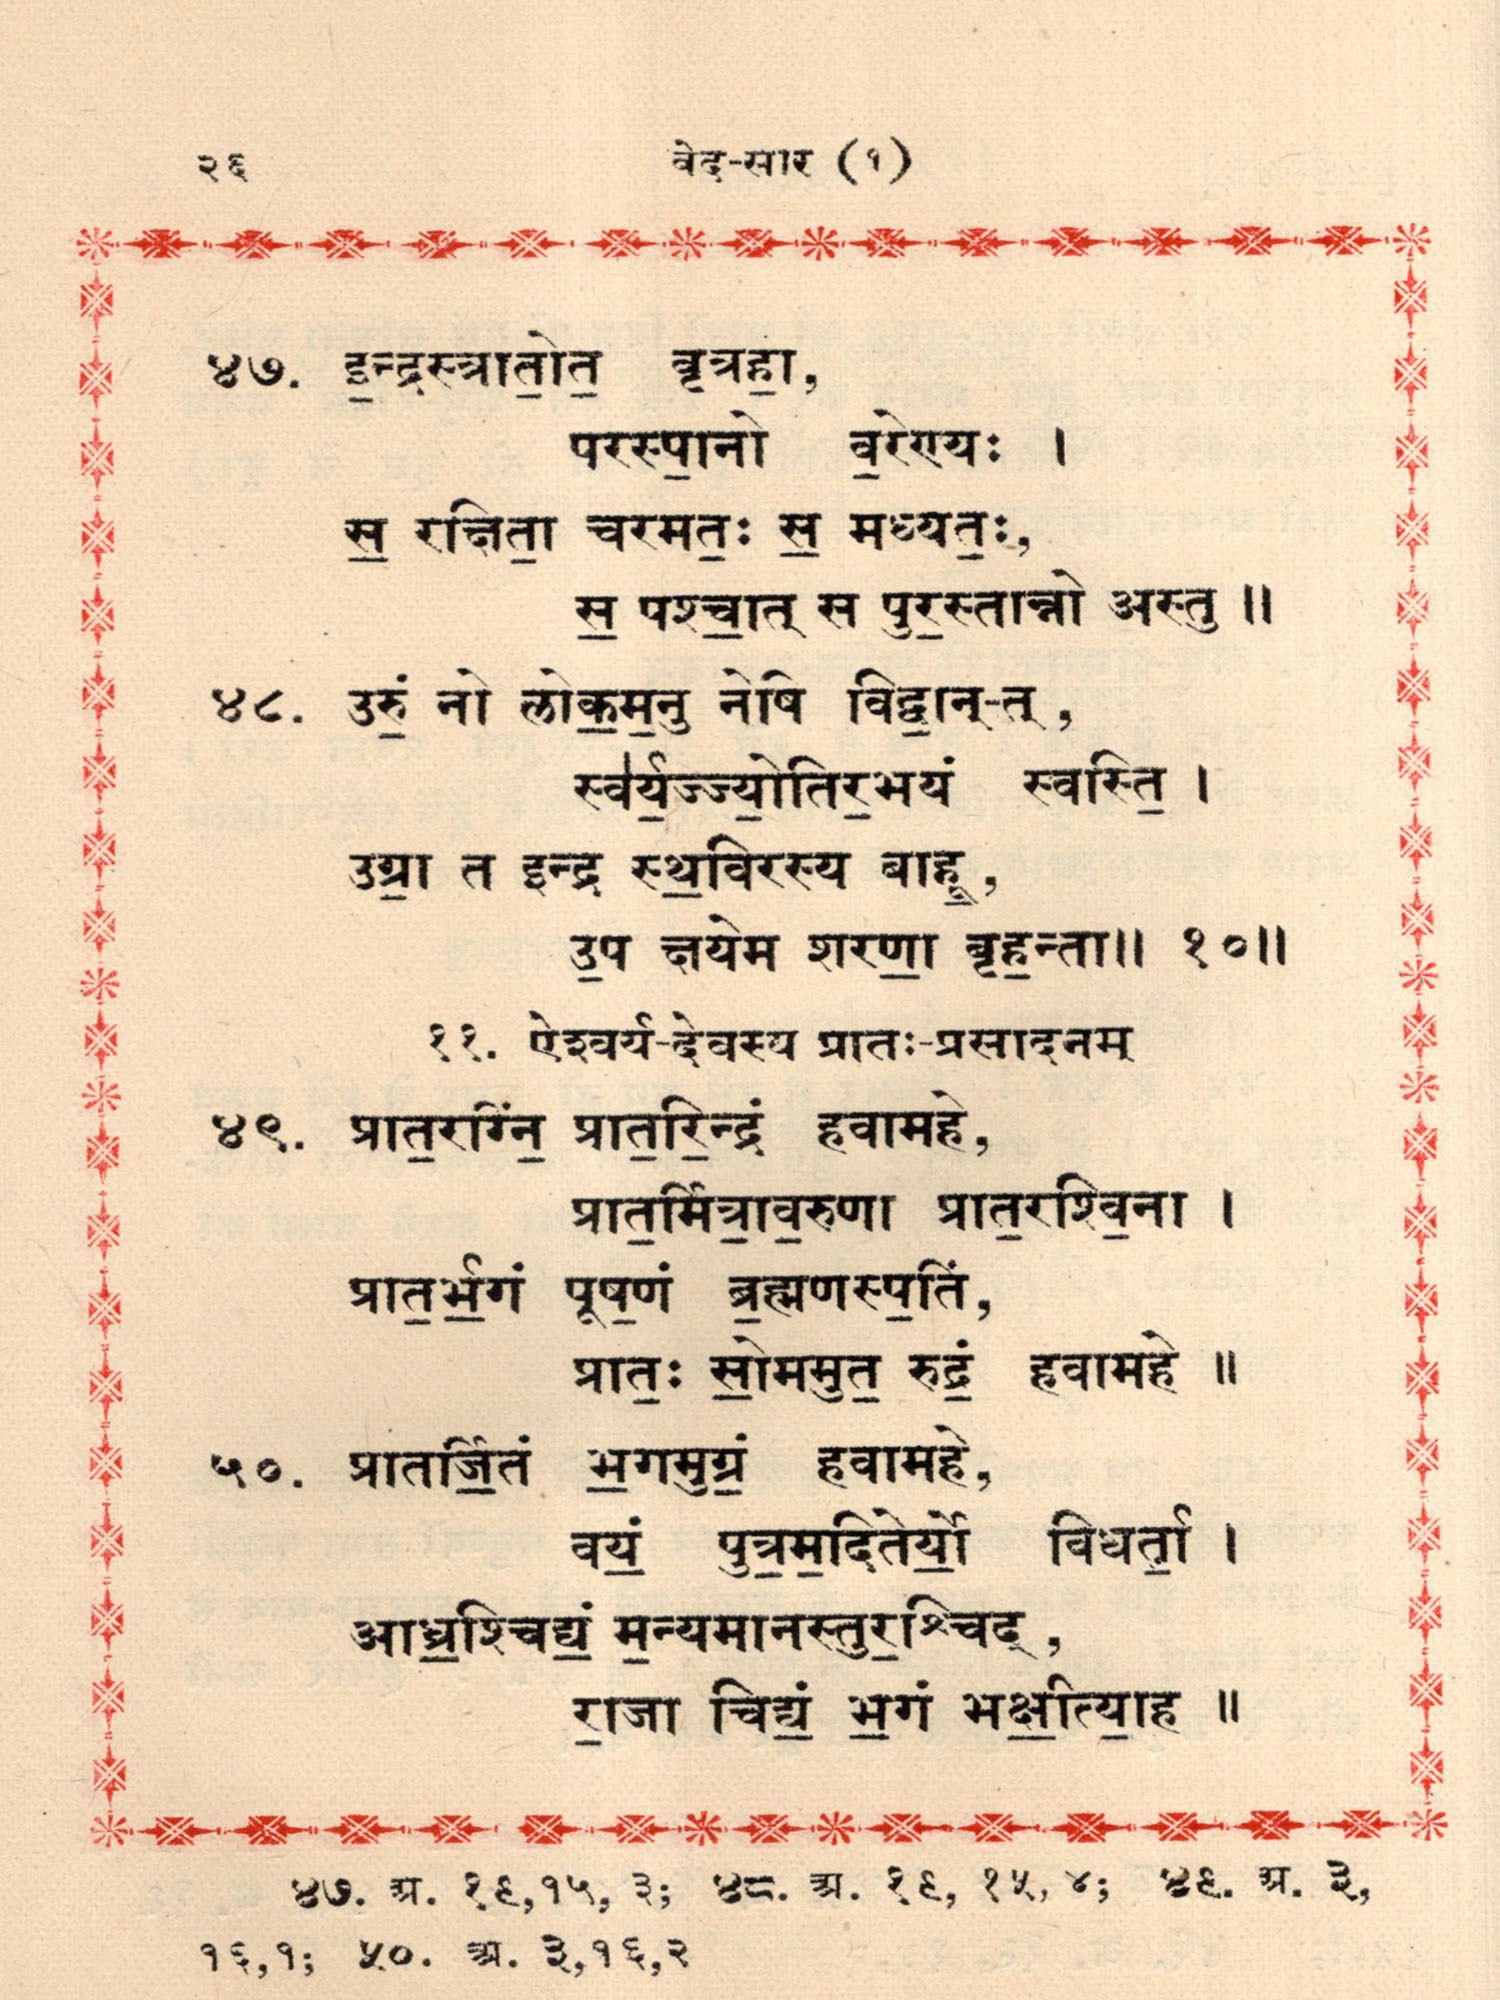 २६ वेद-सार (१)
४७. इ॒न्द्रस्त्राता॒ोत॒ वृत्रहा॒,
परस्पा॒नो व॒रेण्यः ।
स॒ रक्षिता॒ चरमत॒ः स॒ मध्यत॒ः,
स॒ पश्चा॒त् स पुर॒स्तान्नो अस्तु ॥
४८. उरुं॒ नो लोक॒म॒नु नेषि विद्वा॒न्-त्,
स्व॑र्य॒ज्ज्यो॒तिर॒भयं स्वस्ति॒ ।
उग्रा॒ त इन्द्र स्थ॒विरस्य बाहू॒,
उ॒प क्षयेम शरणा॒ बृह॒न्ता॥ १०॥
११. ऐश्वर्य-देवस्य प्रातः-प्रसादनम्
४९. प्रात॒रग्निं॒ प्रात॒रि॒न्द्रं हवामहे,
प्रात॒र्मित्रा॒व॒रुणा प्रात॒रश्वि॒ना ।
प्रात॒र्भ॒गं पूष॒णं ब्र॒ह्मणस्प॒तिं,
प्रात॒ः सो॒ममुत॒ रुद्रं॒ हवामहे ॥
५०. प्रातर्जि॒तं भ॒गमुग्रं॒ हवामहे,
वयं॒ पुत्र॒म॒दितेर्यो॒ विधर्ता॒ ।
आध्र॒श्चिद्यं॒ म॒न्यमानस्तुर॒श्चिद्,
रा॒जा चिद्यं॒ भ॒गं भक्षी॒त्या॒ह ॥
४७. अ. १९,१५, ३; ४८. अ. १९, १५, ४; ४९. अ. ३,
१६,१; ५०. अ. ३,१६,२